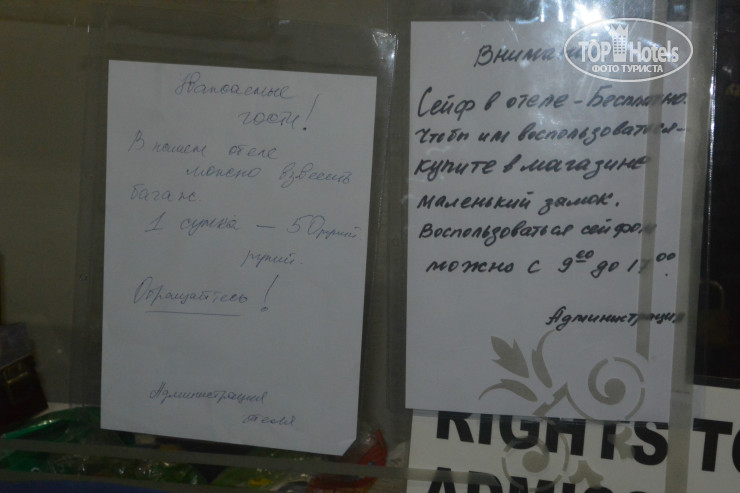 Уважаемые
гости!
В нашем отеле
можно взвесить
багаж
1 сумка — 50 рупий
рупий.
Обращайтесь!
Администрация
отеля
TOP Hotels
ФОТО ТУРИСТА
Внима
Сейф в отеле - Бесплатно.
Чтобы им воспользоваться -
купите в магазине
маленький замок.
Воспользоваться сейфом
можно с 9 00 до 17 00.
Администрация
RIGHTS TO